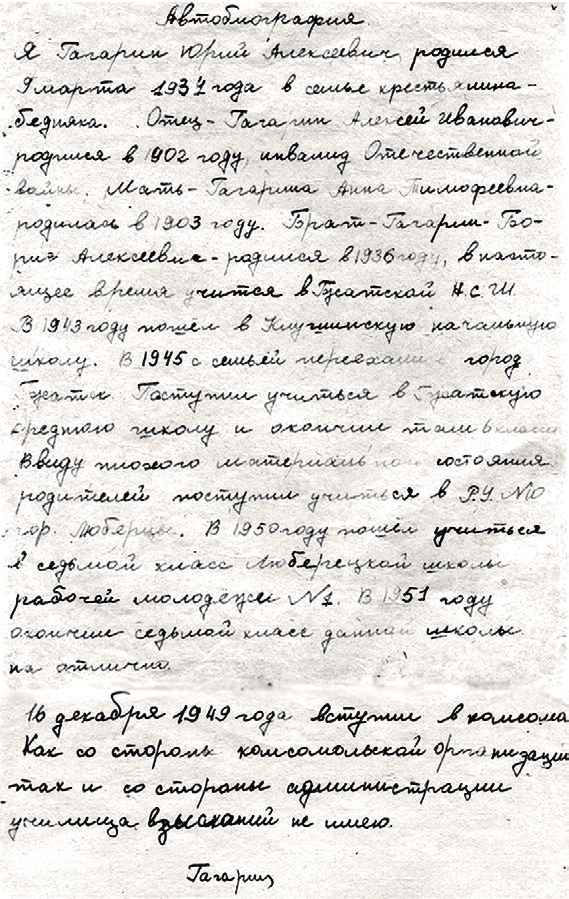 Автобиография
Я Гагарин Юрий Алексеевич, родился
9 марта 1934 года в семье крестьянина-
бедняка. Отец - Гагарин Алексей Иванович-
родился в 1902 году, инвалид Отечественной
войны. Мать - Гагарина Анна Тимофеевна-
родилась в 1903 году. Брат - Гагарин - Бо-
рис Алексеевич - родился в 1936 году, в насто-
ящее время учится в Гжатской Н.С.Ш.
В 1943 году пошёл в Клушинскую начальную
школу. В 1945 с семьёй переехали в город
Гжатск. Поступил учиться в Гжатскую
среднюю школу и окончил там 6 классов
Ввиду плохого материального состояния
родителей поступил учиться в Р.У. №10
гор. Люберцы. В 1950 году пошёл учиться
в седьмой класс Люберецкой школы
рабочей молодёжи №1. В 1951 году
окончил седьмой класс данной школы
на отлично.
16 декабря 1949 года вступил в комсомол
Как со стороны комсомольской организации
так и со стороны администрации
училища взысканий не имею.
Гагарин